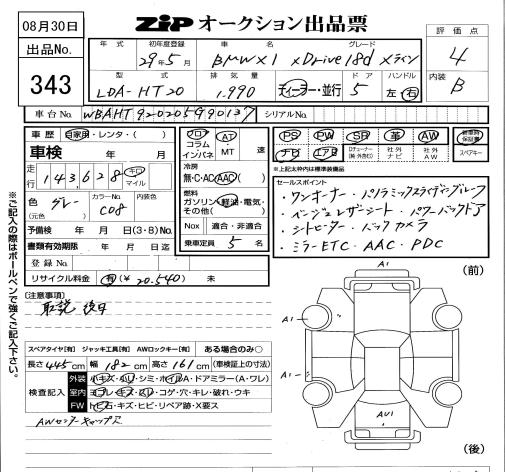 08月30日
ZIP オークション出品票
評価点
4
内装
B
出品No.
343
年式 初年度登録 車名 グレード
29年5月 BMW X1 xDrive18d xライン
型式 排気量 ドア ハンドル
LDA-HT20 1,990 ディーラー・並行 5 左・右
車台No. WBAHT920205G90137 シリアルNo.
車歴 自家用・レンタ・( )
車検 年 月 日
走行 143,628 キロ マイル
色 グレー (元色)
カラーNo. C08
内装色
予備検 年 月 日(3・8)No.
書類有効期限 年 月 日迄
登録No.
リサイクル料金 有(¥ 20,540) 未
フロア コラム インパネ
AT ・ MT 速
冷房
無・C・AC・AAC( )
燃料
ガソリン・軽油・電気・その他( )
Nox 適合・非適合
乗車定員 5 名
PS PW SR 革 AW
ナビ エアB
TVチューナー(純・外含む)
社外ナビ
社外AW
新車時保証書
スペアキー
※上記太枠内は標準装備品
セールスポイント
・ワンオーナー・パノラミックスライディングルーフ
・ベージュレザーシート・パワーバックドア
・シートヒーター・バックカメラ
・ミラーETC・AAC・PDC
※ご記入の際はボールペンで強くご記入下さい。
(注意事項)
取説 後日
スペアタイヤ[有] ジャッキ工具[有] AWロックキー[有] ある場合のみ○
長さ 445cm 幅 182cm 高さ 161cm (車検証上の寸法)
検査記入
外装 小キズ・凹・シミ・ホイルA・ドアミラー(A・ワレ)
室内 ヨゴレ・キズ・スレ・コゲ・穴・キレ・破れ・ウキ
FW トビ石・キズ・ヒビ・リペア跡・X要ス
AWセンターキャップス
(前)
A1
A1
A1
AU1
(後)